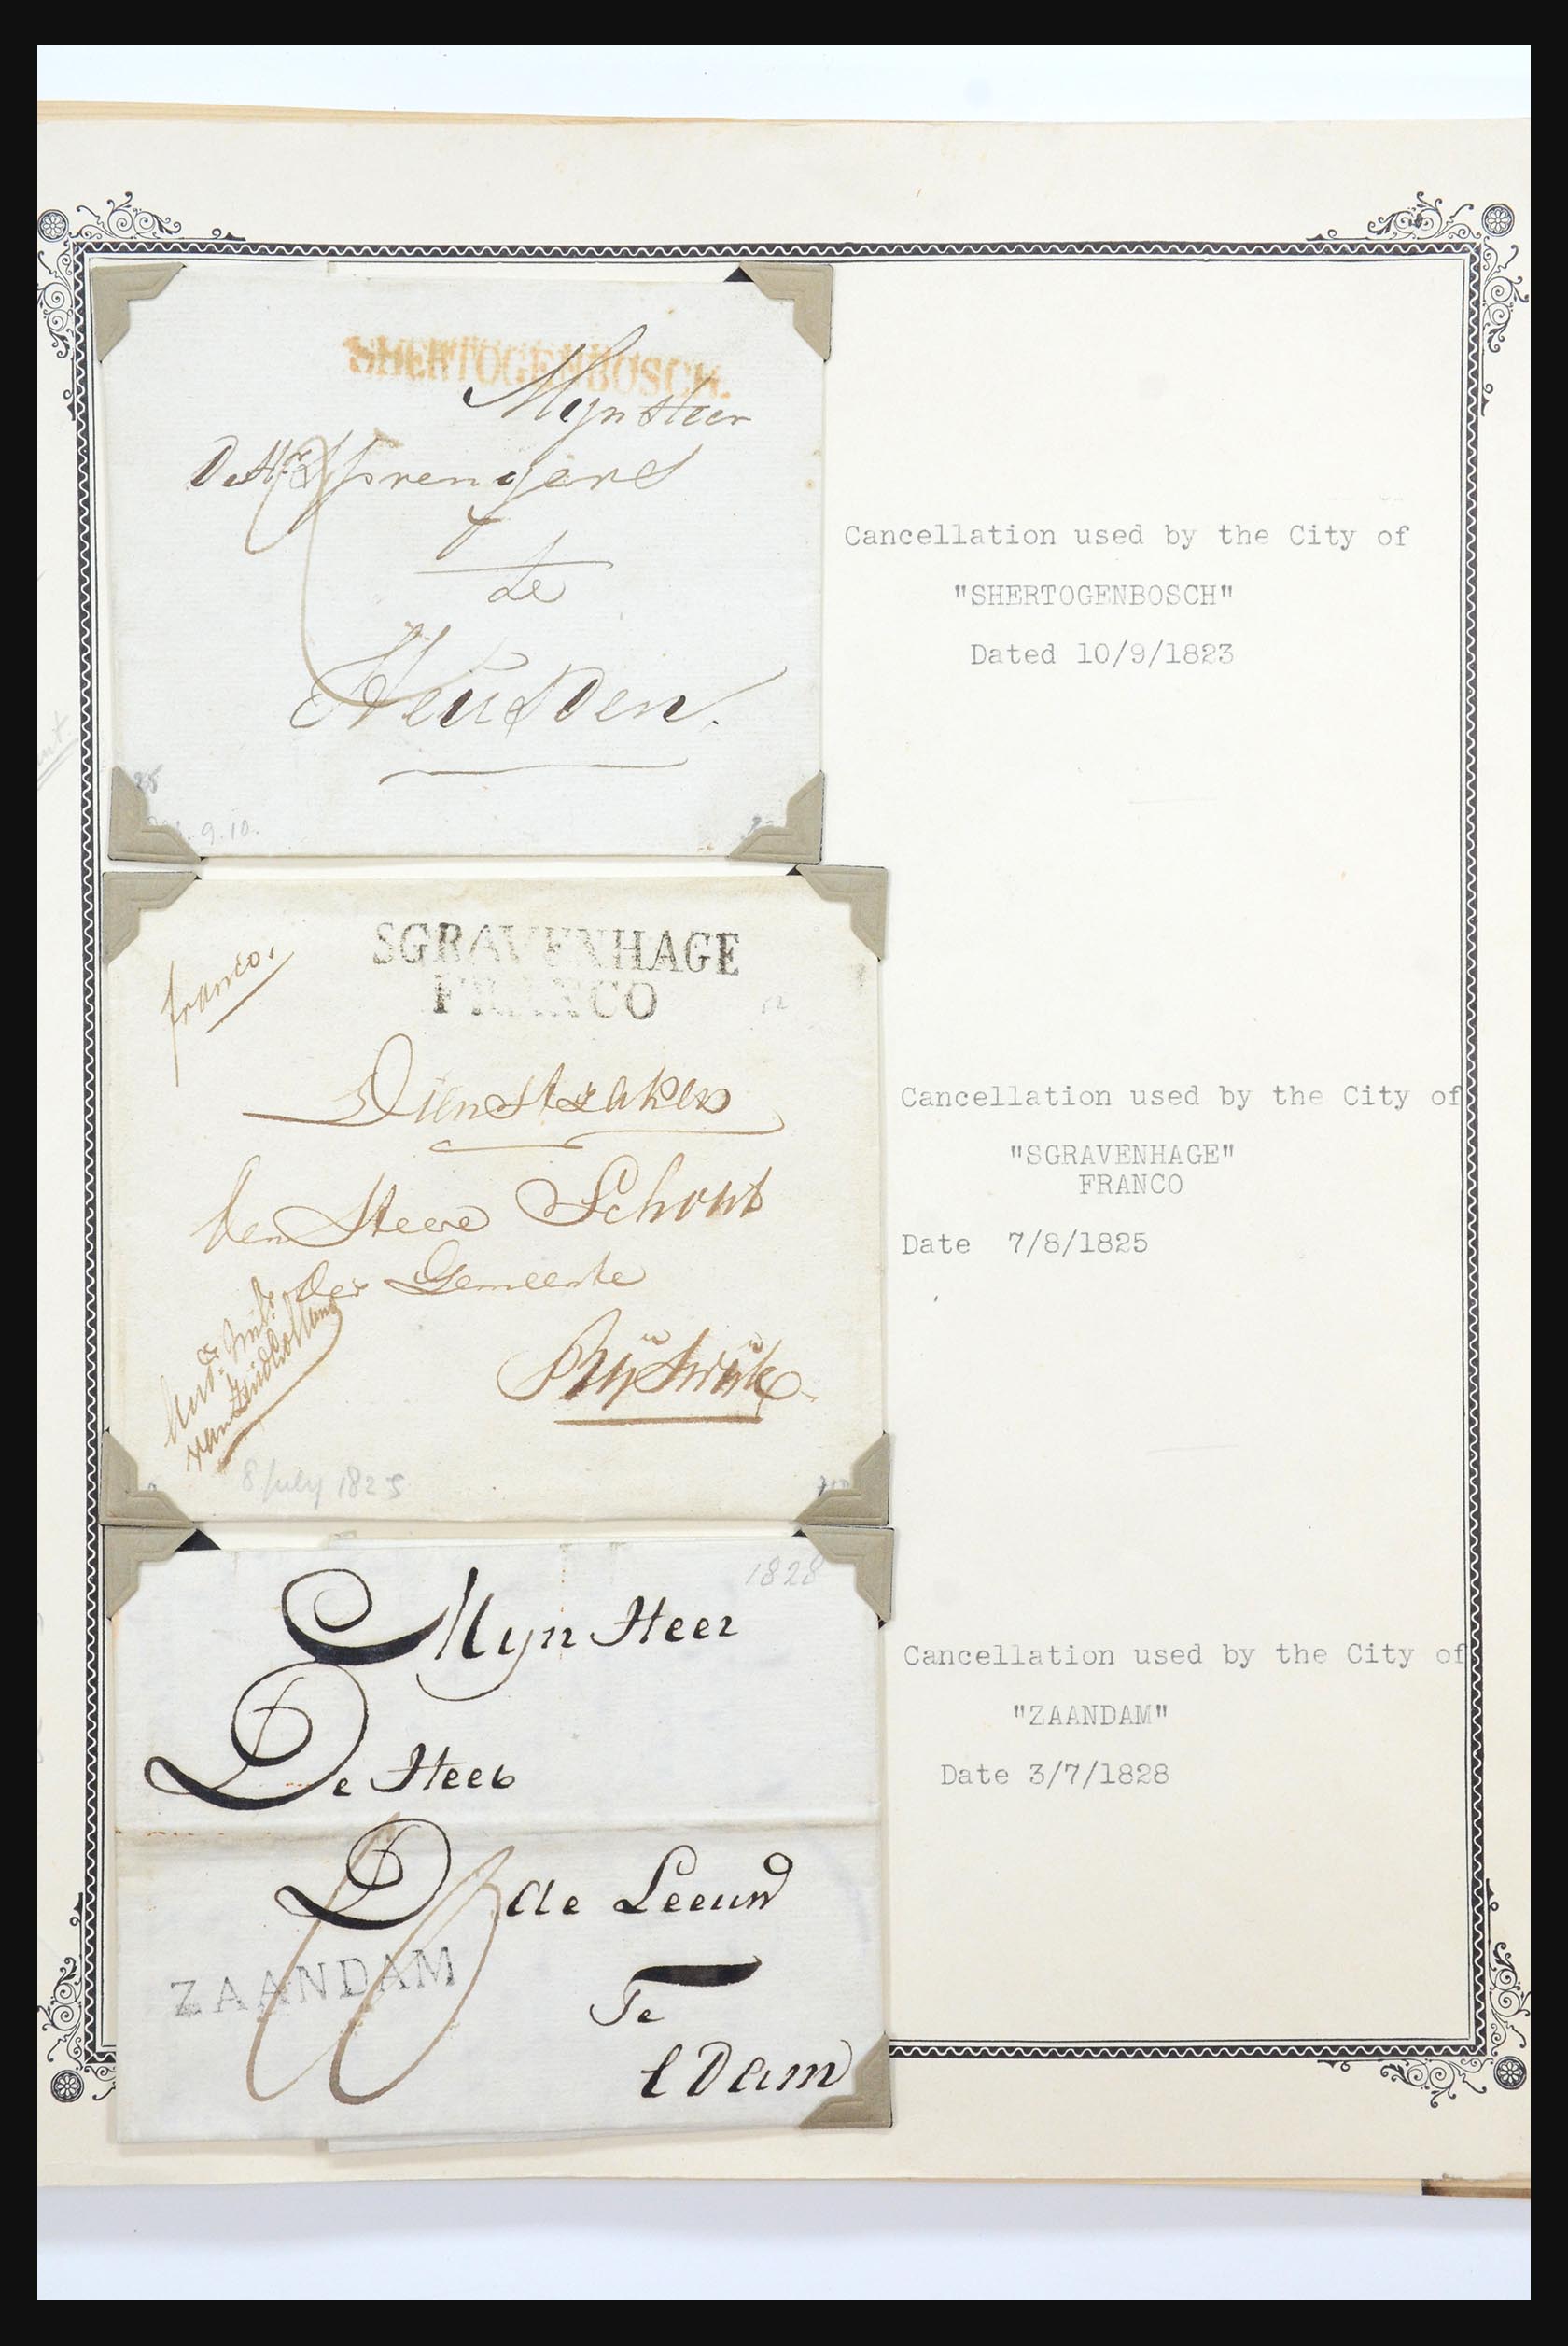 SHERTOGENBOSCH.
Mynheer
Sprengers
te
Heusden.
25
9.10.
Cancellation used by the City of
"SHERTOGENBOSCH"
Dated 10/9/1823
SGRAVENHAGE
FRANCO
franco.
Dienstzaken
den Heere Schout
der Gemeente
Ryswyk
van Zuid Holland
8 july 1825
Cancellation used by the City of
"SGRAVENHAGE"
FRANCO
Date 7/8/1825
1828
Myn Heer
De Heer
D de Leeuw
Te
EDam
ZAANDAM
Cancellation used by the City of
"ZAANDAM"
Date 3/7/1828